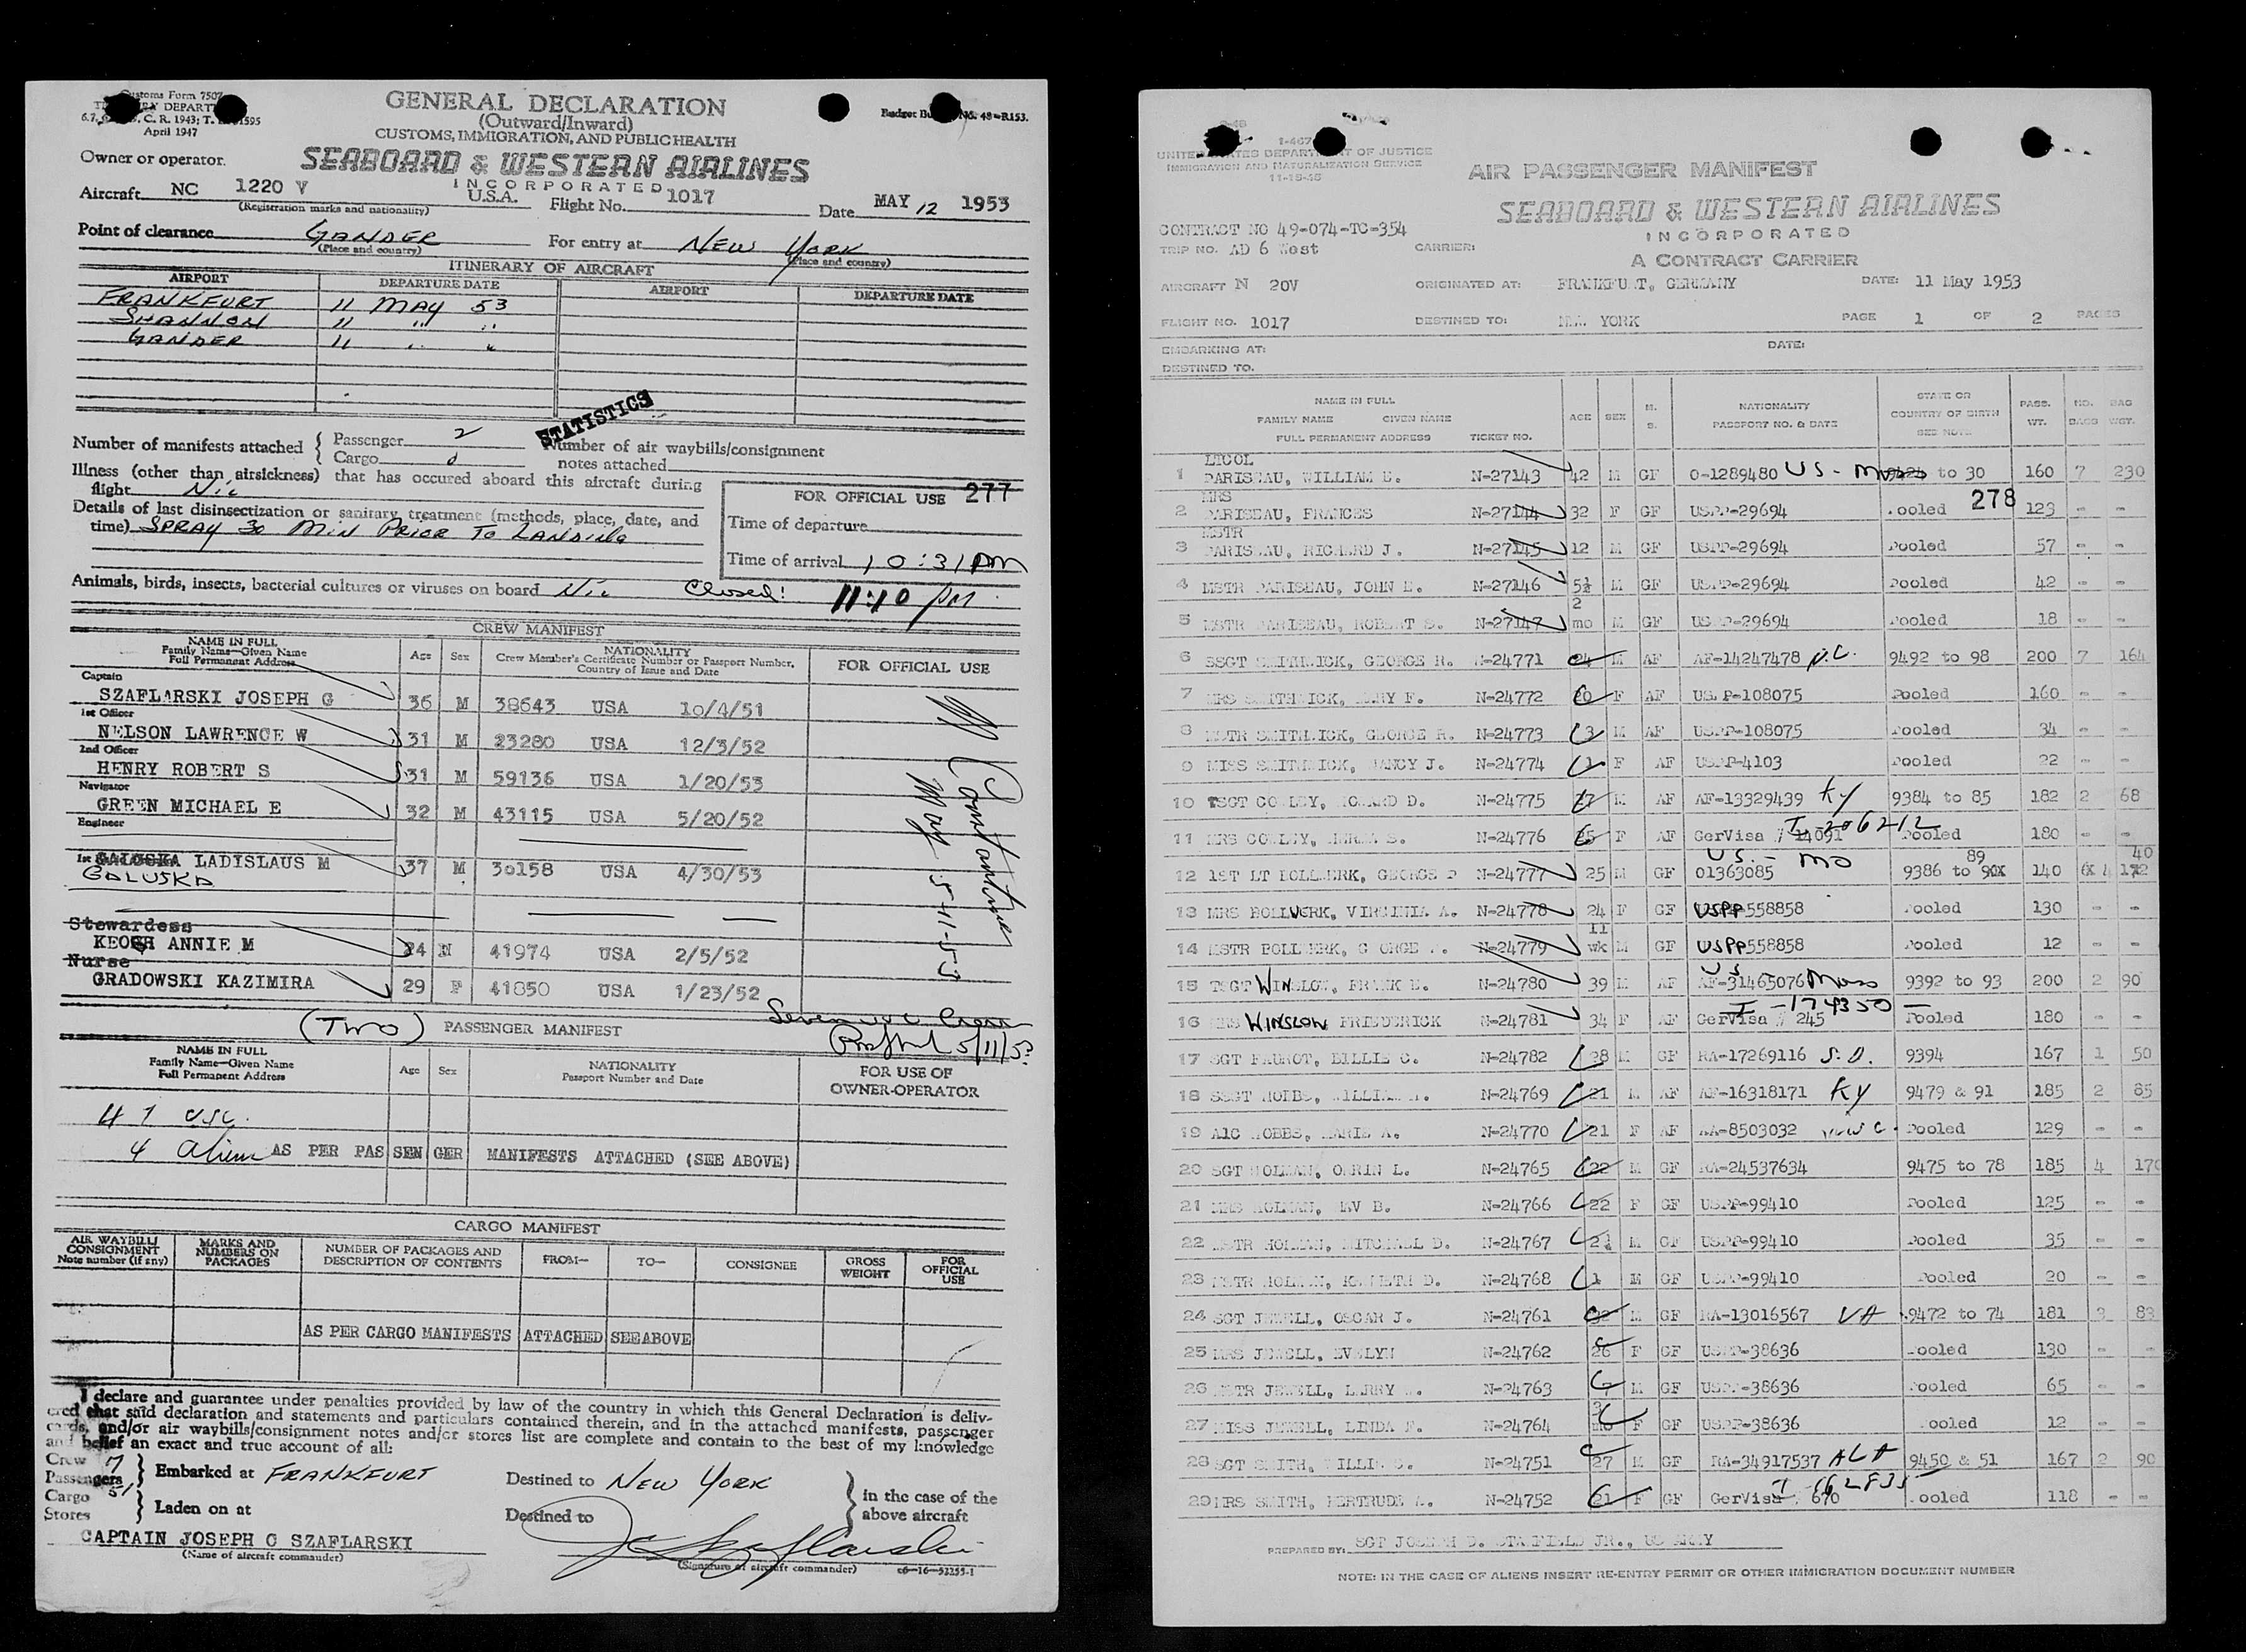 Customs Form 7507
April 1947
GENERAL DECLARATION
(Outward/Inward)
CUSTOMS, IMMIGRATION, AND PUBLIC HEALTH
Owner or operator.
SEABOARD & WESTERN AIRLINES
INCORPORATED
Aircraft NC 1220 V U.S.A. Flight No. 1017 Date MAY 12 1953
(Registration marks and nationality)
Point of clearance GANDER For entry at NEW YORK
(Place and country) (Place and country)
ITINERARY OF AIRCRAFT
AIRPORT DEPARTURE DATE AIRPORT DEPARTURE DATE
FRANKFURT 11 MAY 53
SHANNON 11 " "
GANDER 11 " "
STATISTICS
Number of manifests attached { Passenger 2 Number of air waybills/consignment
Cargo 0 notes attached
Illness (other than airsickness) that has occured aboard this aircraft during
flight Nil
FOR OFFICIAL USE 277
Details of last disinsectization or sanitary treatment (methods, place, date, and
time) SPRAY 30 MIN PRIOR TO LANDING
Time of departure
Time of arrival 10:31 PM
Animals, birds, insects, bacterial cultures or viruses on board Nil Closed: 11:10 PM
CREW MANIFEST
NAME IN FULL
Family Name—Given Name
Full Permanent Address
Age Sex
NATIONALITY
Crew Member's Certificate Number or Passport Number,
Country of Issue and Date
FOR OFFICIAL USE
Captain
SZAFLARSKI JOSEPH G 36 M 38643 USA 10/4/51
1st Officer
NELSON LAWRENCE W 31 M 23280 USA 12/3/52
2nd Officer
HENRY ROBERT S 31 M 59136 USA 1/20/53
Navigator
GREEN MICHAEL E 32 M 43115 USA 5/20/52
Engineer
LADISLAUS M 37 M 30158 USA 4/30/53
GALUSKA
Stewardess
KEOGH ANNIE M 24 41974 USA 2/5/52
Nurse
GRADOWSKI KAZIMIRA 29 F 41850 USA 1/23/52
May 5-11-53
(TWO) PASSENGER MANIFEST
5/11/53
NAME IN FULL
Family Name—Given Name
Full Permanent Address
Age Sex
NATIONALITY
Passport Number and Date
FOR USE OF
OWNER-OPERATOR
47 USC.
4 Aliens AS PER PASSENGER MANIFESTS ATTACHED (SEE ABOVE)
CARGO MANIFEST
AIR WAYBILL/
CONSIGNMENT
Note number (if any)
MARKS AND
NUMBERS ON
PACKAGES
NUMBER OF PACKAGES AND
DESCRIPTION OF CONTENTS
FROM— TO— CONSIGNEE
GROSS
WEIGHT
FOR
OFFICIAL
USE
AS PER CARGO MANIFESTS ATTACHED SEE ABOVE
I declare and guarantee under penalties provided by law of the country in which this General Declaration is deliv-
ered that said declaration and statements and particulars contained therein, and in the attached manifests, passenger
cards, and/or air waybills/consignment notes and/or stores list are complete and contain to the best of my knowledge
and belief an exact and true account of all:
Crew 7
Passengers 51
Cargo
Stores
Embarked at FRANKFURT Destined to NEW YORK
Laden on at Destined to
in the case of the
above aircraft
CAPTAIN JOSEPH G SZAFLARSKI
(Name of aircraft commander) (Signature of aircraft commander) c6—16—52255-1
UNITED STATES DEPARTMENT OF JUSTICE
IMMIGRATION AND NATURALIZATION SERVICE
AIR PASSENGER MANIFEST
SEABOARD & WESTERN AIRLINES
INCORPORATED
A CONTRACT CARRIER
CONTRACT NO 49-074-TC-354
TRIP NO. AD 6 West CARRIER:
AIRCRAFT N 20V ORIGINATED AT: FRANKFURT, GERMANY DATE: 11 May 1953
FLIGHT NO. 1017 DESTINED TO: NEW YORK PAGE 1 OF 2 PAGES
EMBARKING AT: DATE:
DESTINED TO.
NAME IN FULL
FAMILY NAME GIVEN NAME
FULL PERMANENT ADDRESS TICKET NO.
AGE SEX M. S.
NATIONALITY
PASSPORT NO. & DATE
STATE OR
COUNTRY OF BIRTH
SEE NOTE
PASS. WT. NO. BAGS BAG WGT.
1 LTCOL PARISEAU, WILLIAM E. N-27143 42 M GF O-1289480 US - Mass to 30 160 7 230
2 MRS PARISEAU, FRANCES N-27144 32 F GF USPP-29694 Pooled 278 123 - -
3 MSTR PARISEAU, RICHARD J. N-27145 12 M GF USPP-29694 Pooled 57 - -
4 MSTR PARISEAU, JOHN E. N-27146 5½ M GF USPP-29694 Pooled 42 - -
5 MSTR PARISEAU, ROBERT S. N-27147 2 mo M GF USPP-29694 Pooled 18 - -
6 SSGT SMITHWICK, GEORGE R. N-24771 24 M AF AF-14247478 N.C. 9492 to 98 200 7 164
7 MRS SMITHWICK, MARY F. N-24772 20 F AF USPP-108075 Pooled 160 - -
8 MSTR SMITHWICK, GEORGE R. N-24773 3 M AF USPP-108075 Pooled 34 - -
9 MISS SMITHWICK, NANCY J. N-24774 1 F AF USPP-4103 Pooled 22 - -
10 TSGT CONLEY, HOWARD D. N-24775 27 M AF AF-13329439 Ky 9384 to 85 182 2 68
11 MRS CONLEY, S. N-24776 25 F AF GerVisa # 14091 I-206212 Pooled 180 - -
12 1ST LT BOLLWERK, GEORGE P N-24777 25 M GF 01363085 US - Mo 9386 to 89 140 4 40
13 MRS BOLLWERK, VIRGINIA A. N-24778 24 F GF USPP 558858 Pooled 130 - -
14 MSTR BOLLWERK, GEORGE N-24779 11 wk M GF USPP 558858 Pooled 12 - -
15 TSGT WINSLOW, FRANK E. N-24780 39 M AF AF-31465076 US Mass 9392 to 93 200 2 90
16 MRS WINSLOW FRIEDERICK N-24781 34 F AF GerVisa # 245 I-174350 Pooled 180 - -
17 SGT FAUROT, BILLIE C. N-24782 28 M GF RA-17269116 S.D. 9394 167 1 50
18 SSGT HOBBS, WILLIAM N-24769 21 M AF AF-16318171 Ky 9479 & 91 185 2 85
19 A1C HOBBS, MARIE A. N-24770 21 F AF AA-8503032 Pooled 129 - -
20 SGT HOLMAN, ORRIN L. N-24765 22 M GF RA-24537634 9475 to 78 185 4 170
21 MRS HOLMAN, B. N-24766 22 F GF USPP-99410 Pooled 125 - -
22 MSTR HOLMAN, MITCHELL D. N-24767 M GF USPP-99410 Pooled 35 - -
23 MSTR HOLMAN, KENNETH D. N-24768 1 M GF USPP-99410 Pooled 20 - -
24 SGT JEWELL, OSCAR J. N-24761 M GF RA-13016567 VA 9472 to 74 181 3 83
25 MRS JEWELL, EVELYN N-24762 26 F GF USPP-38636 Pooled 130 - -
26 MSTR JEWELL, LARRY N-24763 M GF USPP-38636 Pooled 65 - -
27 MISS JEWELL, LINDA F. N-24764 3 mo F GF USPP-38636 Pooled 12 - -
28 SGT SMITH, WILLIE C. N-24751 27 M GF RA-34917537 ALA 9450 & 51 167 2 90
29 MRS SMITH, GERTRUDE N-24752 21 F GF GerVisa 670 Pooled 118 - -
PREPARED BY: SGT JOSEPH D. STANFIELD JR., US ARMY
NOTE: IN THE CASE OF ALIENS INSERT RE-ENTRY PERMIT OR OTHER IMMIGRATION DOCUMENT NUMBER